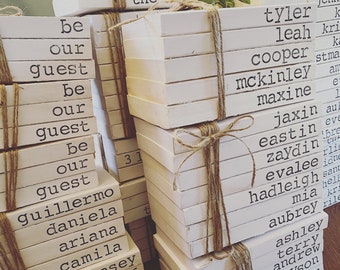 be
our
guest
be
our
guest
be
our
guest
guillermo
daniela
ariana
camila
the
tyler
leah
cooper
mckinley
maxine
jaxin
eastin
zaydin
evalee
hadleigh
mia
aubrey
ashley
terry
andrew